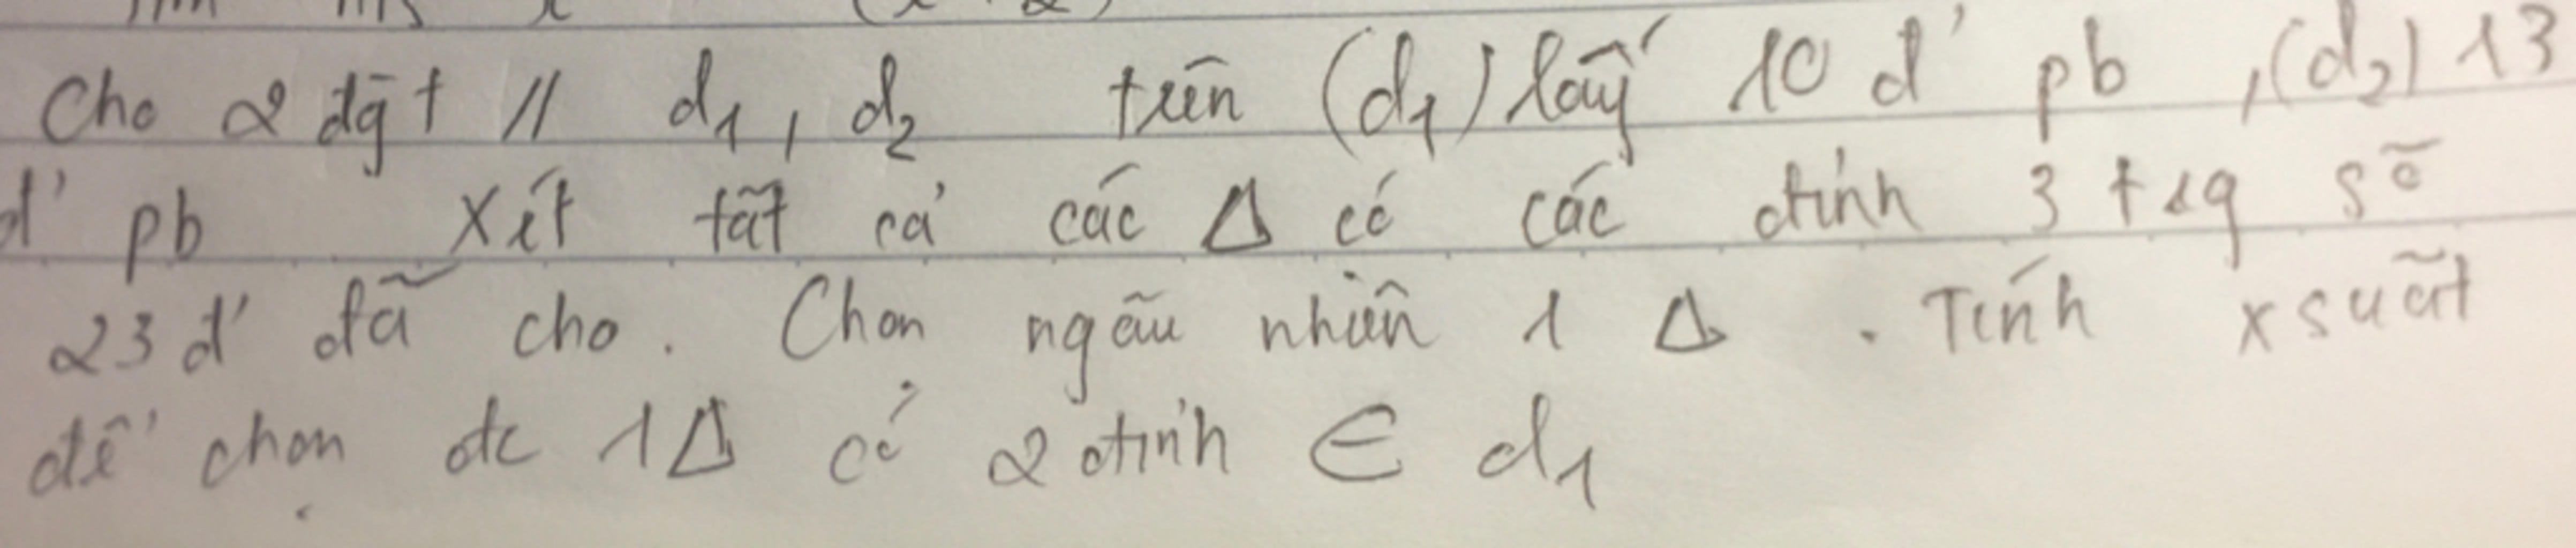 Cho 2 đgt // d1, d2 trên (d1) lấy 10 đ' pb, (d2) 13
đ' pb xét tất cả các Δ có các đỉnh 3 trg số
23 đ' đã cho. Chọn ngẫu nhiên 1 Δ. Tính xsuất
để chọn đc 1Δ có 2 đỉnh ∈ d1